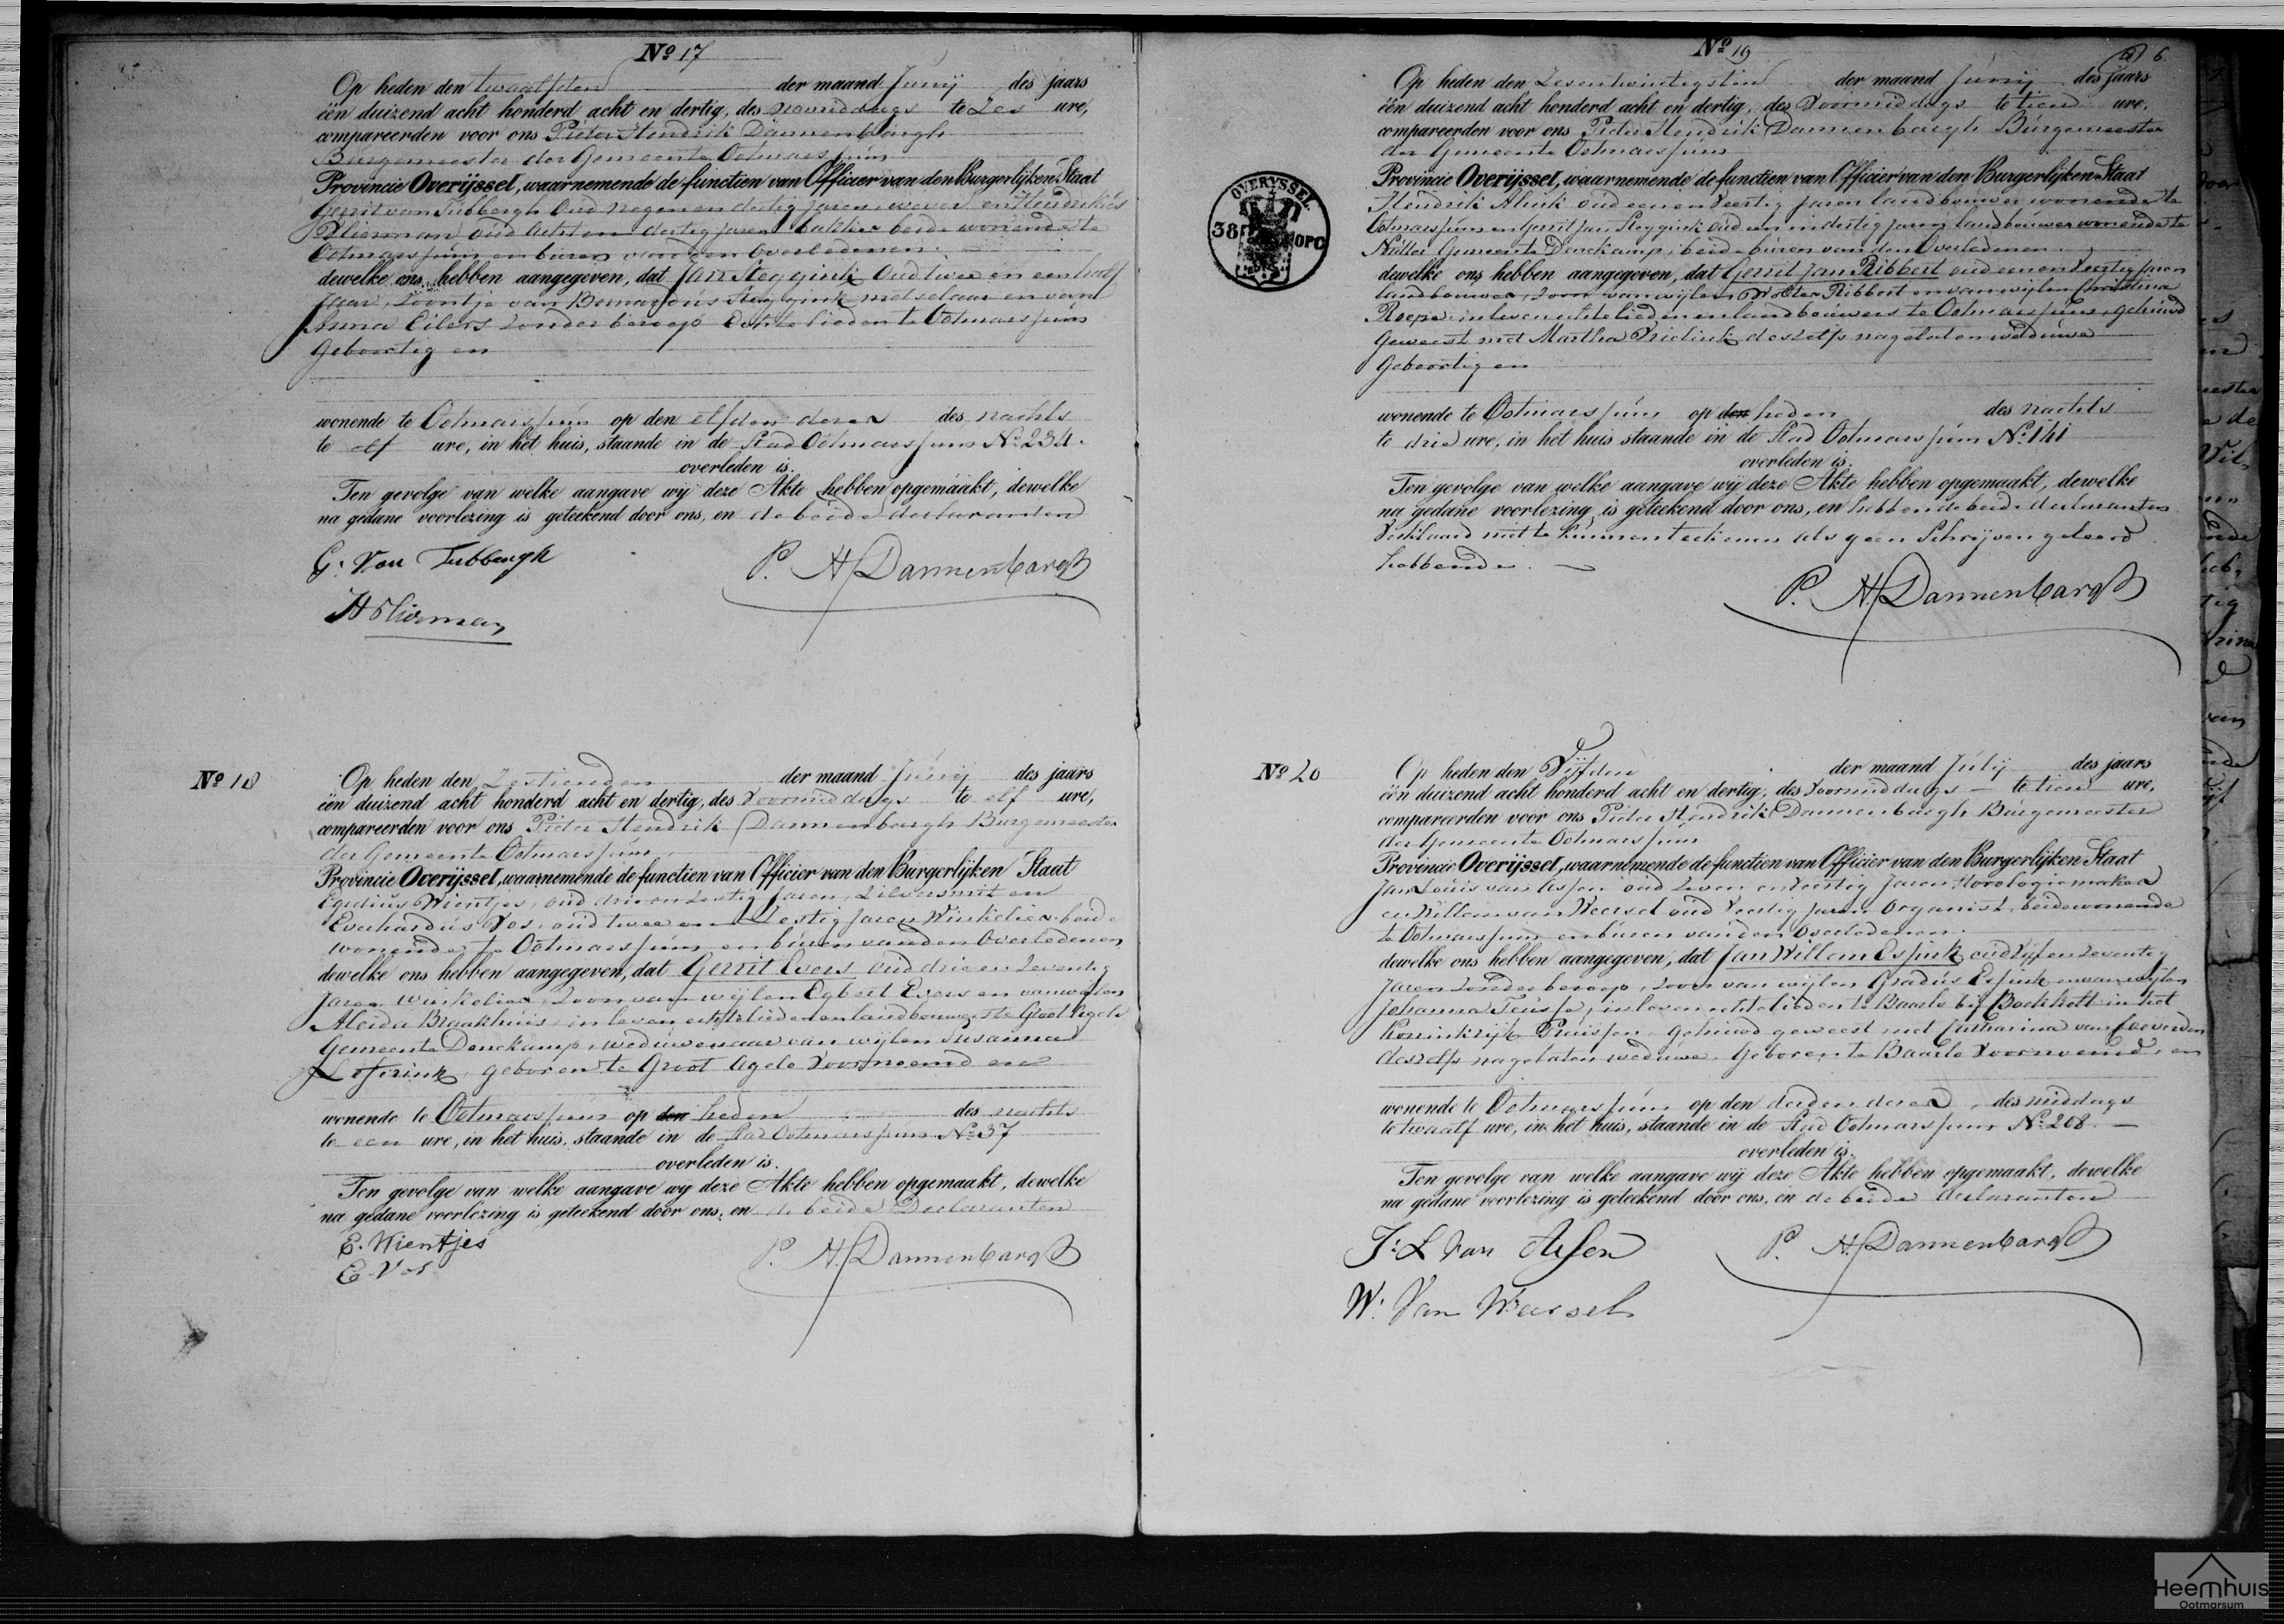 Nº 17
Op heden den twaalfden der maand Junij des jaars
één duizend acht honderd acht en dertig, des namiddags te Zes ure,
compareerden voor ons Pieter Hendrik Dannenbargh
Burgemeester der Gemeente Ootmarssum
Provincie Overijssel, waarnemende de functien van Officier van den Burgerlijken Staat
Gerrit van Tubbergh oud negen en dertig Jaren, wever en Hendrikus
Vlierman oud acht en dertig jaren bakker beide wonende te
Ootmarssum en buren van den overledenen
dewelke ons hebben aangegeven, dat Jan Steggink oud twee en een half
Jaar, Zoontje van Steggink metselaar en van
Anna Eilers zonder beroep Echtelieden te Ootmarssum
Geboortig en
wonende te Ootmarssum op den elfden dezer des nachts
te elf ure, in het huis, staande in de Stad Ootmarssum Nº 234.
overleden is.
Ten gevolge van welke aangave wij deze Akte hebben opgemaakt, dewelke
na gedane voorlezing is geteekend door ons, en de beide declaranten
G. Van Tubbergh P. H. Dannenbargh
H Vlierman
Nº 18
Op heden den Zestienden der maand Junij des jaars
één duizend acht honderd acht en dertig, des Voormiddags te elf ure,
compareerden voor ons Pieter Hendrik Dannenbargh Burgemeester
der Gemeente Ootmarssum
Provincie Overijssel, waarnemende de functien van Officier van den Burgerlijken Staat
Egidius Wientjes, oud drie en Zestig Jaren, Zilversmit en
Everhardus Vos, oud twee en Zestig Jaren Winkelier beide
wonende te Ootmarssum en buren van den Overledenen
dewelke ons hebben aangegeven, dat Gerrit Evers oud drie en Zeventig
Jaren Winkelier, Zoon van wijlen Egbert Evers en van wijlen
Aleida Braakhuis, in leven echtelieden en landbouwers te Groot Agele
Gemeente Denekamp, weduwenaar van wijlen Susanna
geboren te Groot Agele Voornoemd en
wonende te Ootmarssum op den heden des nachts
te een ure, in het huis, staande in de Stad Ootmarssum Nº 37
overleden is.
Ten gevolge van welke aangave wij deze Akte hebben opgemaakt, dewelke
na gedane voorlezing is geteekend door ons, en de beide Declaranten
E. Wientjes P. H. Dannenbargh
E. Vos
Nº 19
6
Op heden den Zesentwintigsten der maand Junij des jaars
één duizend acht honderd acht en dertig, des Voormiddags te tien ure,
compareerden voor ons Pieter Hendrik Dannenbargh Burgemeester
der Gemeente Ootmarssum
Provincie Overijssel, waarnemende de functien van Officier van den Burgerlijken Staat
Hendrik Alink oud een en Veertig Jaren landbouwer wonende te
Ootmarssum en Gerrit Jan Steggink oud een en dertig Jaren landbouwer wonende te
Nutter Gemeente Denekamp, beide buren van den Overledenen
dewelke ons hebben aangegeven, dat Gerrit Jan Ribbert oud een en Veertig Jaren
landbouwer, Zoon van wijlen Wolter Ribbert en van wijlen Christina
in leven echtelieden en landbouwers te Ootmarssum, gehuwd
Geweest met Martha deszelfs nagelaten weduwe
Geboortig en
wonende te Ootmarssum op den heden des nachts
te drie ure, in het huis staande in de Stad Ootmarssum Nº 141
overleden is.
Ten gevolge van welke aangave wij deze Akte hebben opgemaakt, dewelke
na gedane voorlezing is geteekend door ons, en hebben de beide declaranten
Verklaard niet te kunnen teekenen als geen Schrijven geleerd
hebbende.
P. H. Dannenbargh
OVERYSSEL
38
OPC
Nº 20
Op heden den Vijfden der maand Julij des jaars
één duizend acht honderd acht en dertig, des Voormiddags te tien ure,
compareerden voor ons Pieter Hendrik Dannenbargh Burgemeester
der Gemeente Ootmarssum
Provincie Overijssel, waarnemende de functien van Officier van den Burgerlijken Staat
Jan Louis van Assen oud Zeven en Veertig Jaren Horologiemaker
en Willem van Weersel oud Veertig Jaren Organist, beide wonende
te Ootmarssum en buren van den Overledenen
dewelke ons hebben aangegeven, dat Jan Willem Essink oud Vijf en Zeventig
Jaren Zonder beroep, Zoon van wijlen Gradus Essink en van wijlen
Johanna in leven echtelieden te Baarlo bij Bockholt in het
Koninkrijk Pruissen, Gehuwd geweest met Catharina van Coeverden
deszelfs nagelaten weduwe, Geboren te Baarlo Voornoemd, en
wonende te Ootmarssum op den derden dezer, des middags
te twaalf ure, in het huis, staande in de Stad Ootmarssum Nº 208.
overleden is.
Ten gevolge van welke aangave wij deze Akte hebben opgemaakt, dewelke
na gedane voorlezing is geteekend door ons, en de beide declaranten
J. L van Assen P. H. Dannenbargh
W. Van Weersel
Heemhuis
Ootmarsum